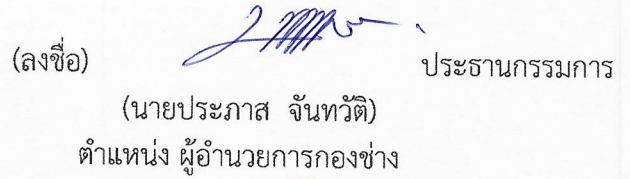 (ลงชื่อ) ประธานกรรมการ
(นายประภาส จันทวัติ)
ตำแหน่ง ผู้อำนวยการกองช่าง